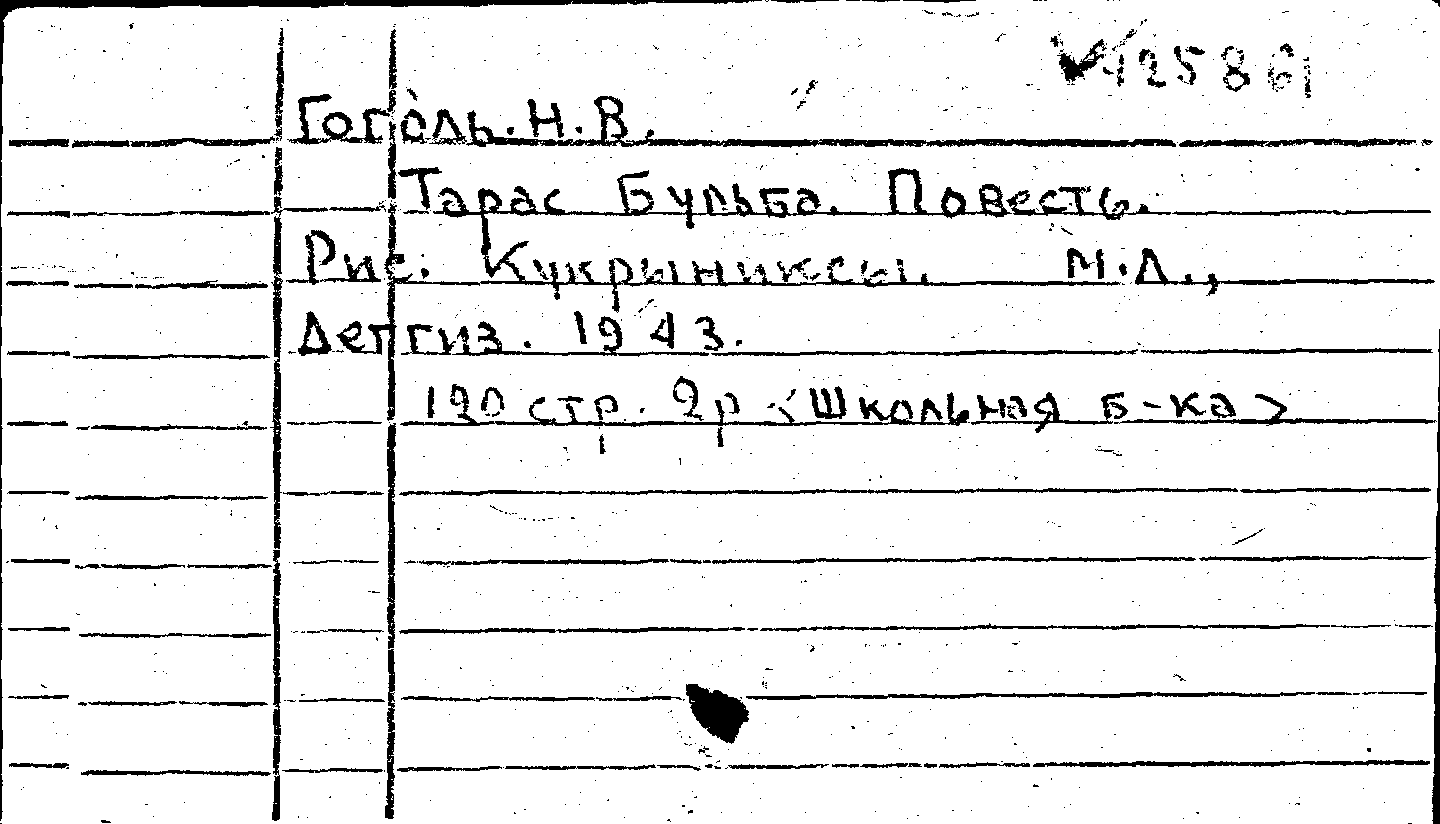 125861
Гоголь. Н. В.
Тарас Бульба. Повесть.
Рис. Кукрыниксы. М.Л.,
Детгиз. 1943.
120 стр. 2р <Школьная б-ка>